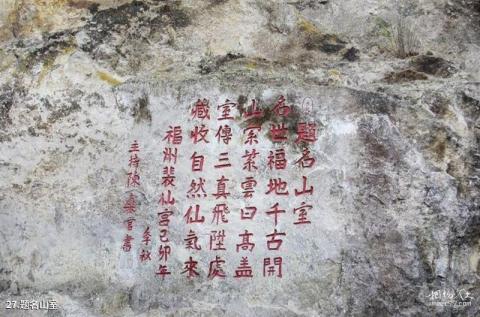 題名山室
名世福地千古開
山雲曰高蓋
室傳三真飛陞處
藏收自然仙氣來
福州裴仙宮己卯年
季秋
主持陳書
27.题名山室